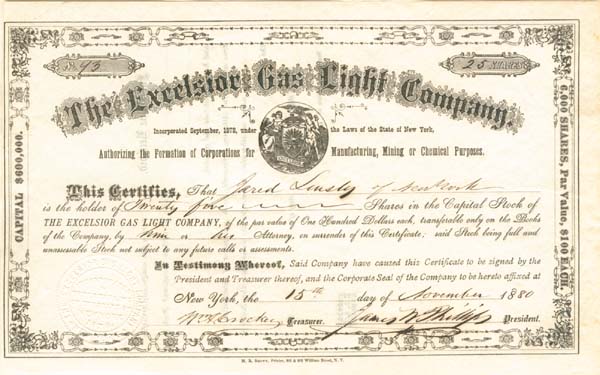 No. 93
25 SHARES
The Excelsior Gas Light Company.
Incorporated September, 1872, under the Laws of the State of New York,
Authorizing the Formation of Corporations for Manufacturing, Mining or Chemical Purposes.
CAPITAL $600,000.
6,000 SHARES, Par Value, $100 EACH.
This Certifies, That Jared Linsly of New York
is the holder of Twenty five Shares in the Capital Stock of
THE EXCELSIOR GAS LIGHT COMPANY, of the par value of One Hundred Dollars each, transferable only on the Books
of the Company, by him or his Attorney, on surrender of this Certificate; said Stock being full and
unassessable Stock not subject to any future calls or assessments.
In Testimony Whereof, Said Company have caused this Certificate to be signed by the
President and Treasurer thereof, and the Corporate Seal of the Company to be hereto affixed at
New York, the 15th day of November 1880
Treasurer. James W President.
M. B. Brown, Printer, William Street, N. Y.